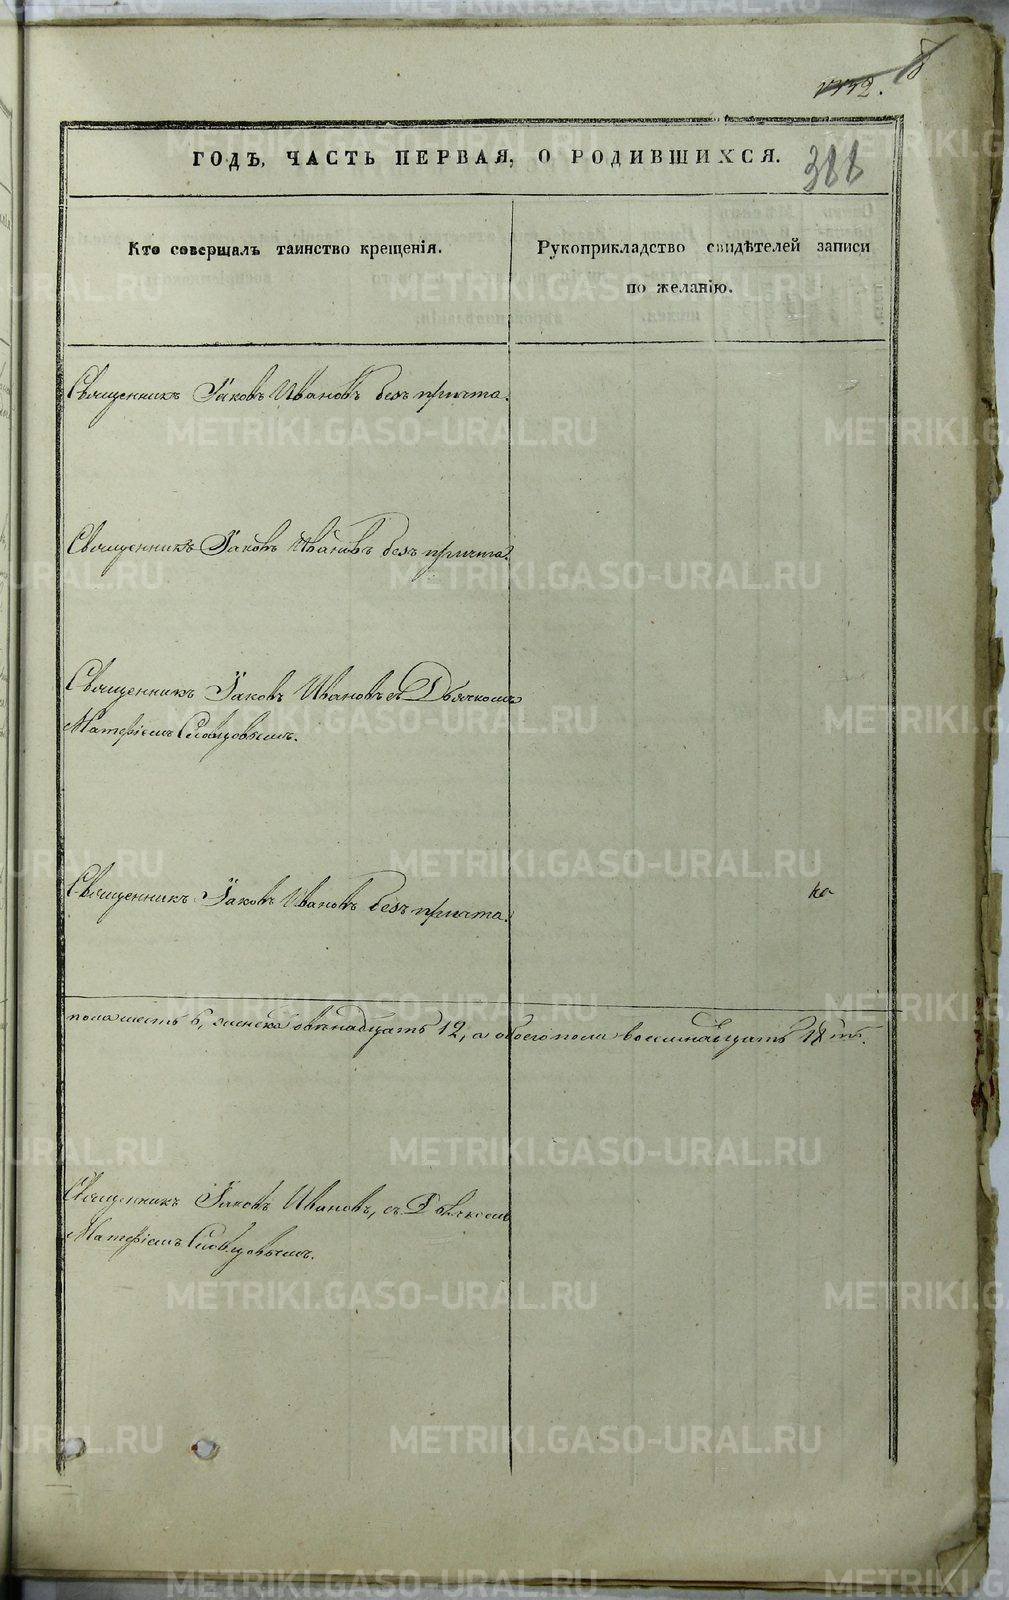 8
1152.
ГОДЪ, ЧАСТЬ ПЕРВАЯ, О РОДИВШИХСЯ.
388
Кто совершалъ таинство крещенія.
Рукоприкладство свидѣтелей записи
по желанію.
Священникъ Іаковъ Ивановъ безъ причта.
Священникъ Іаковъ Ивановъ безъ причта.
Священникъ Іаковъ Ивановъ съ Дьячкомъ
Матѳіемъ Словцовымъ.
Священникъ Іаковъ Ивановъ безъ причта.
пола шесть 6, женска двѣнадцать 12, а обоего пола восемнадцать 18ть.
Священникъ Іаковъ Ивановъ, съ Дьячкомъ
Матѳіемъ Словцовымъ.
METRIKI.GASO-URAL.RU